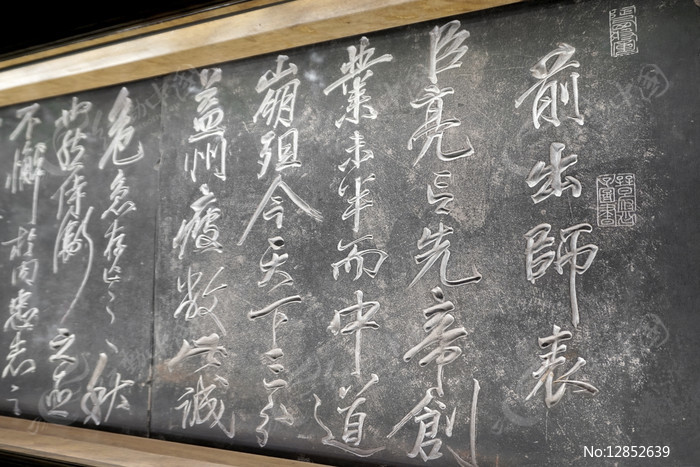 前出師表
臣亮言先帝創
業未半而中道
崩殂今天下三分
益州疲敝此誠
危急存亡之秋
也然侍衛之臣
不懈於内忠志之
No:12852639